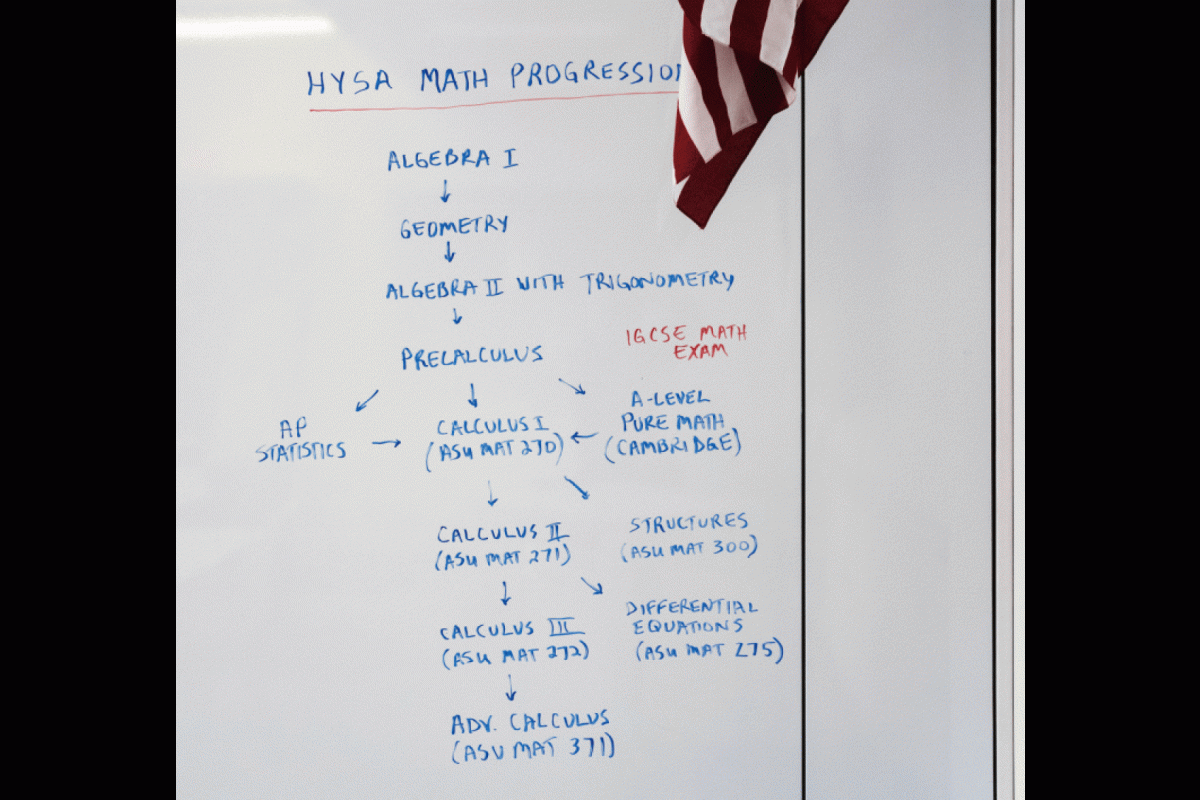 HYSA MATH PROGRESSION
ALGEBRA I
GEOMETRY
ALGEBRA II WITH TRIGONOMETRY
IGCSE MATH
EXAM
PRECALCULUS
AP
STATISTICS
CALCULUS I
(ASU MAT 270)
A-LEVEL
PURE MATH
(CAMBRIDGE)
CALCULUS II
(ASU MAT 271)
STRUCTURES
(ASU MAT 300)
CALCULUS III
(ASU MAT 272)
DIFFERENTIAL
EQUATIONS
(ASU MAT 275)
ADV. CALCULUS
(ASU MAT 371)